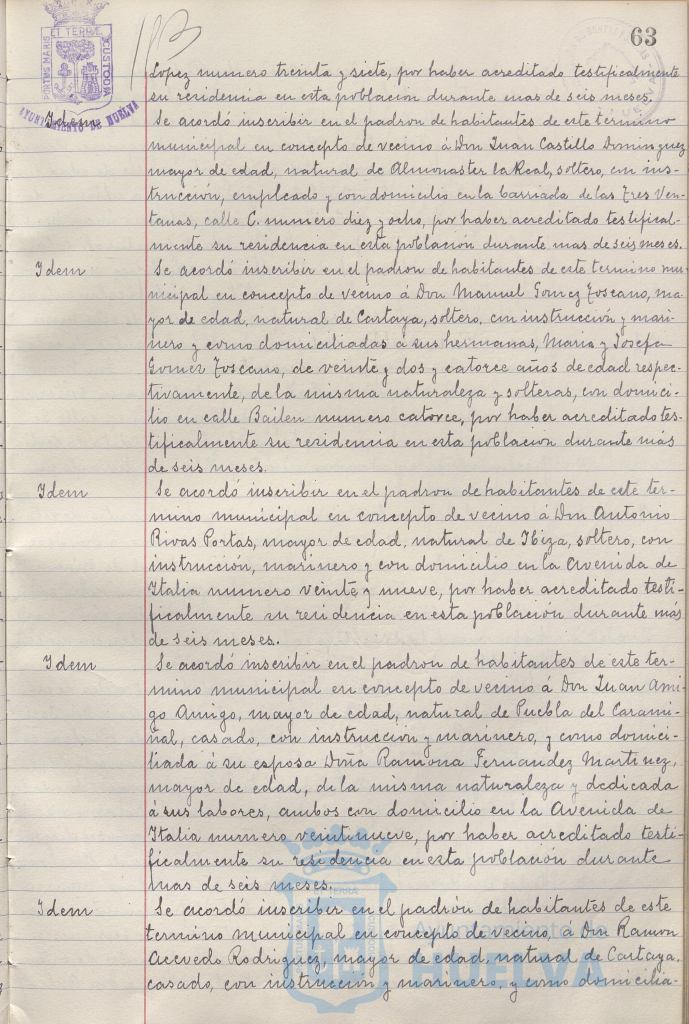 63
PORTUS MARIS ET TERRÆ CUSTODIA
AYUNTAMIENTO DE HUELVA
Lopez numero treinta y siete, por haber acreditado testificalmente
su residencia en esta población durante mas de seis meses.
Idem
Se acordó inscribir en el padron de habitantes de este termino
municipal en concepto de vecino á Don Juan Castillo Dominguez
mayor de edad, natural de Almonaster la Real, soltero, con ins-
trucción, empleado y con domicilio en la barriada de las Tres Ven-
tanas, calle C. numero diez y ocho, por haber acreditado testifical-
mente su residencia en esta población durante mas de seis meses.
Idem
Se acordó inscribir en el padron de habitantes de este termino mu-
nicipal en concepto de vecino á Don Manuel Gomez Toscano, ma-
yor de edad, natural de Cartaya, soltero, con instrucción y mari-
nero y como domiciliadas a sus hermanas, Maria y Josefa
Gomez Toscano, de veinte y dos y catorce años de edad respec-
tivamente, de la misma naturaleza y solteras, con domici-
lio en calle Bailen numero catorce, por haber acreditado tes-
tificalmente su residencia en esta poblacion durante más
de seis meses.
Idem
Se acordó inscribir en el padron de habitantes de este ter-
mino municipal en concepto de vecino á Don Antonio
Rivas Portas, mayor de edad, natural de Ibiza, soltero, con
instrucción, marinero y con domicilio en la Avenida de
Italia numero veinte y nueve, por haber acreditado testi-
ficalmente su residencia en esta población durante más
de seis meses.
Idem
Se acordó inscribir en el padron de habitantes de este ter-
mino municipal en concepto de vecino á Don Juan Ami-
go Amigo, mayor de edad, natural de Puebla del Carami-
ñal, casado, con instruccion y marinero, y como domici-
liada á su esposa Doña Ramona Fernandez Martinez,
mayor de edad, de la misma naturaleza y dedicada
á sus labores, ambos con domicilio en la Avenida de
Italia numero veintinueve, por haber acreditado testi-
ficalmente su residencia en esta población durante
mas de seis meses.
Idem
Se acordó inscribir en el padrón de habitantes de este
termino municipal en concepto de vecino, á Don Ramon
Acevedo Rodriguez, mayor de edad, natural de Cartaya,
casado, con instrucción y marinero, y como domicilia-
HUELVA